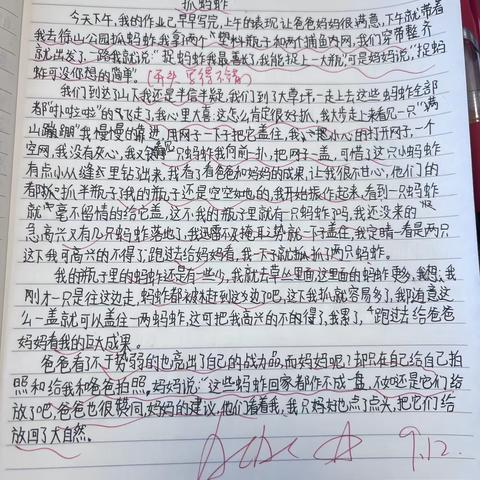 抓蚂蚱
今天下午,我的作业已早早写完,上午的表现让爸爸妈妈很满意,下午就带着
我去徐山公园抓蚂蚱我拿两个塑料瓶子和两个捕鱼内网,我们穿带整齐
就出发了一路我就说:"捉蚂蚱我最喜欢了,我能捉上一大瓶"可是妈妈说,"捉蚂
蚱可没你想的简单"。
我们到达了山下我还是半信半疑,我们到了大草坪,一走上去这些蚂蚱全部
都"啦啦"的飞走了,我心里大喜这怎么肯定很好抓,我大步走上来看见一只"满
山蹦蹦"我慢慢的靠进,用网子一下子把它盖住,我小心的打开网子,一个
空网,我没有灰心,我又看见一只蚂蚱我向前一扑,把网子一盖,可惜了这只小蚂蚱
有点小从缝衣里钻出来,我看了看爸爸和妈妈的成果,让我很不甘心,他们的
都抓半瓶子了我的瓶子还是空空如也的,我开始振作起来,看到一只蚂蚱
就毫不留情的给它盖,这不我的瓶子里就有一只蚂蚱了吗,我还没来的
急高兴又有几只蚂蚱落地了,我迅雷不及掩耳势就一下子盖住,我定睛一看是两只
这下我可高兴的不得了,跑过去给妈妈看,我一下子就抓抓了两只蚂蚱。
我的瓶子里的蚂蚱还是有一些少,我就去草丛里面这里面的蚂蚱更多,我想:我
刚才一只是往这边走,蚂蚱都被赶到这边了吧,这下我抓就容易多了,我随意
么一盖就可以盖住一两蚂蚱,这可把我高兴的不的得了,我累了,跑过去给爸爸
妈妈看我的巨大成果。
爸爸看了不于势弱的也亮出了自己的战力品,而妈妈呢了却只在自己给自己拍
照和给我和爸爸拍照,妈妈说:"这些蚂蚱回家都作不成一盘,不如还是它们给
放了吧,爸爸也很赞同妈妈的建议,他们看着我,我只好也点了点头,把它们给
放回了大自然。
9.12.